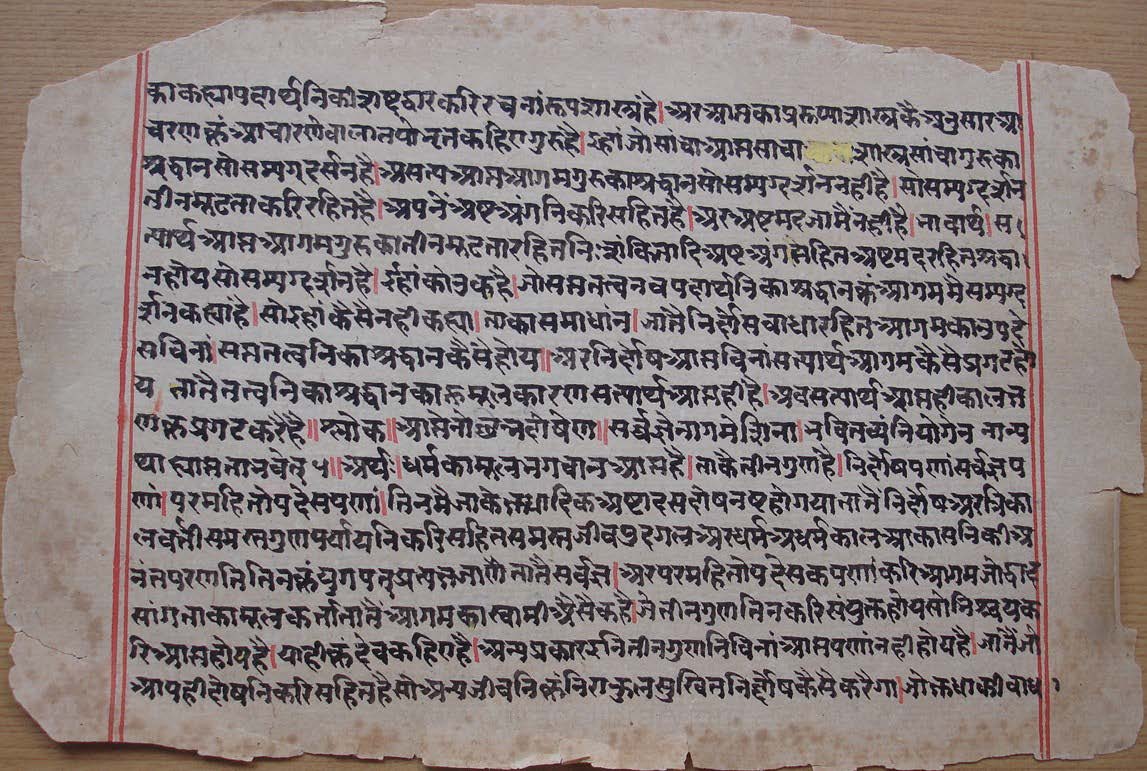 का कह्या पदार्थनिकी अष्ट द्वार करि रचनां रूप शास्त्र है। अर आप्त का प्ररूप्या शास्त्र कै अनुसार आ
चरण कूं आचारणे वाला तपोनृत कहिए गुरु है। इहां जो सांचा आप्त साचा शास्त्र सांचा गुरु का
श्रद्धान सो सम्यग्दर्सन है। असत्य आप्त आगम गुरु का श्रद्धान सो सम्यग्दर्शन नही है। सो सम्यग्दर्शन
तीन मूढता करि रहित है। अपनें अष्ट अंगनि करि सहित है। अर अष्ट मद जामैं नही है। भावार्थ। स
त्यार्थ आप्त आगम गुरु का तीन मूढता रहित निःशंकितादि अष्ट अंग सहित अष्ट मद रहित श्रद्धा
न होय सो सम्यग्दर्शन है। ईहां को उ कहै। जो सप्त तत्व नव पदार्थनिका श्रद्धान कूं आगम मै सम्यग्द
र्शन कह्या है। सो इहां कैसै नही कह्या। ताका समाधांन। जातै निर्दोस वाधा रहित आगम का उपदे
स विनां सप्त तत्वनिका श्रद्धान कैसै होय॥ अर निर्दोष आप्त विनां सत्यार्थ आगम कैसै प्रगट हो
य तातै तत्वनिका श्रद्धान का मूल कारण सत्यार्थ आप्त ही है। अव सत्यार्थ आप्त ही का लक्ष
ण कूं प्रगट करै है॥ श्लोक॥ आप्तेनोछिन्नदोषेण॥ सर्वज्ञेनागमेशिना। भवितव्यं नियोगेन नान्य
था ह्याप्तता भवेत् ५॥ अर्थः। धर्म का मूल भगवान आप्त है। ताकै तीन गुण है। निर्दोष पणां सर्वज्ञ प
णां। परम हितोपदेस पणां। तिन मै जाकै क्षुधादिक अष्टादस दोष नष्ट हो गया तातै निर्दोष अर त्रिका
लवर्त्ती समस्त गुण पर्यायनि करि सहित समस्त जीव पुद्गल अर धर्म अधर्म काल आकासनिकी अ
नंत परणति तिनकूं युगपत् प्रत्यक्ष जाणै तातै सर्वज्ञ। अर परम हितोपदेसक पणां करि आगम जो द्वाद
सांग ताका मूल कर्त्ता तातै आगम का स्वामी ऐसै कहै। जे तीन गुण तिन करि संयुक्त होय सो निश्चय क
रि आप्त होय है। याही कूं देव कहिए है। अन्य प्रकार इनि तीन गुणनि विनां आप्त पणां न ही होय है। जातै जो
आप ही दोषनि करि सहित है सो अन्य जीवनिकूं निराकुल सुखित निर्दोष कैसै करैगा। जो क्षुधा की वाध